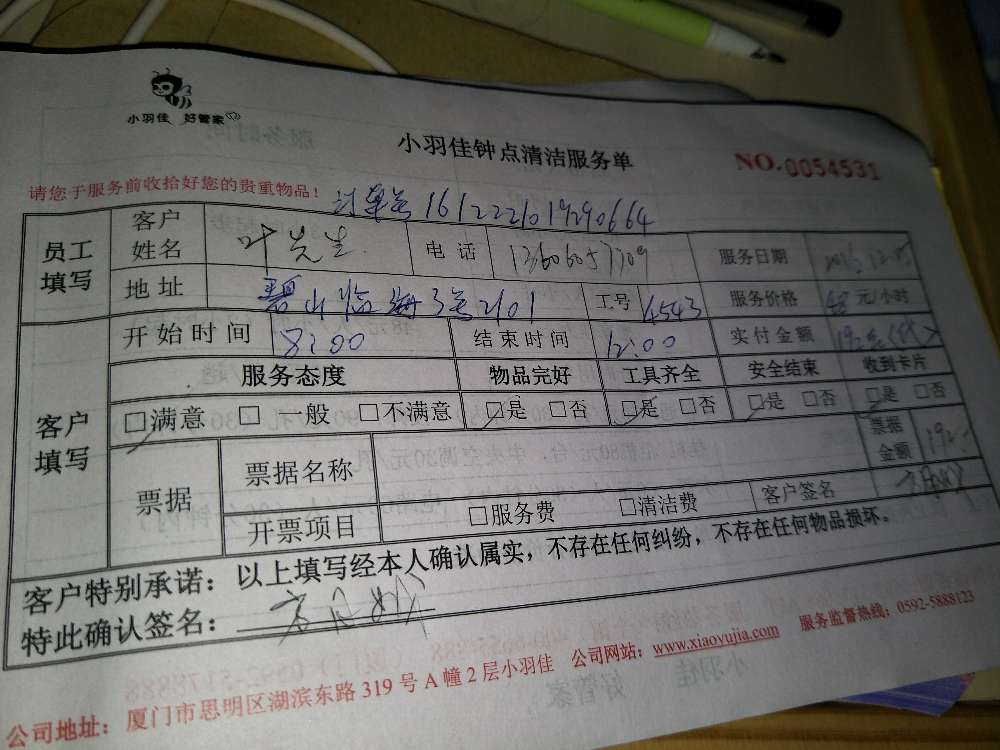 小羽佳 好管家
小羽佳钟点清洁服务单
NO.0054531
请您于服务前收拾好您的贵重物品！
订单号 1612221019290664
员工填写 客户姓名 叶先生 电话 13606057709 服务日期
地址 碧山临海3号2101 工号 4543 服务价格 48元/小时
客户填写 开始时间 8:00 结束时间 12:00 实付金额 192元
服务态度 物品完好 工具齐全 安全结束 收到卡片
□满意 □一般 □不满意 □是 □否 □是 □否 □是 □否 □是 □否
票据 票据名称 票据金额 192.-
开票项目 □服务费 □清洁费 客户签名
客户特别承诺：以上填写经本人确认属实，不存在任何纠纷，不存在任何物品损坏。
特此确认签名：
公司地址：厦门市思明区湖滨东路 319 号 A 幢 2 层小羽佳 公司网站：www.xiaoyujia.com 服务监督热线：0592-5888123